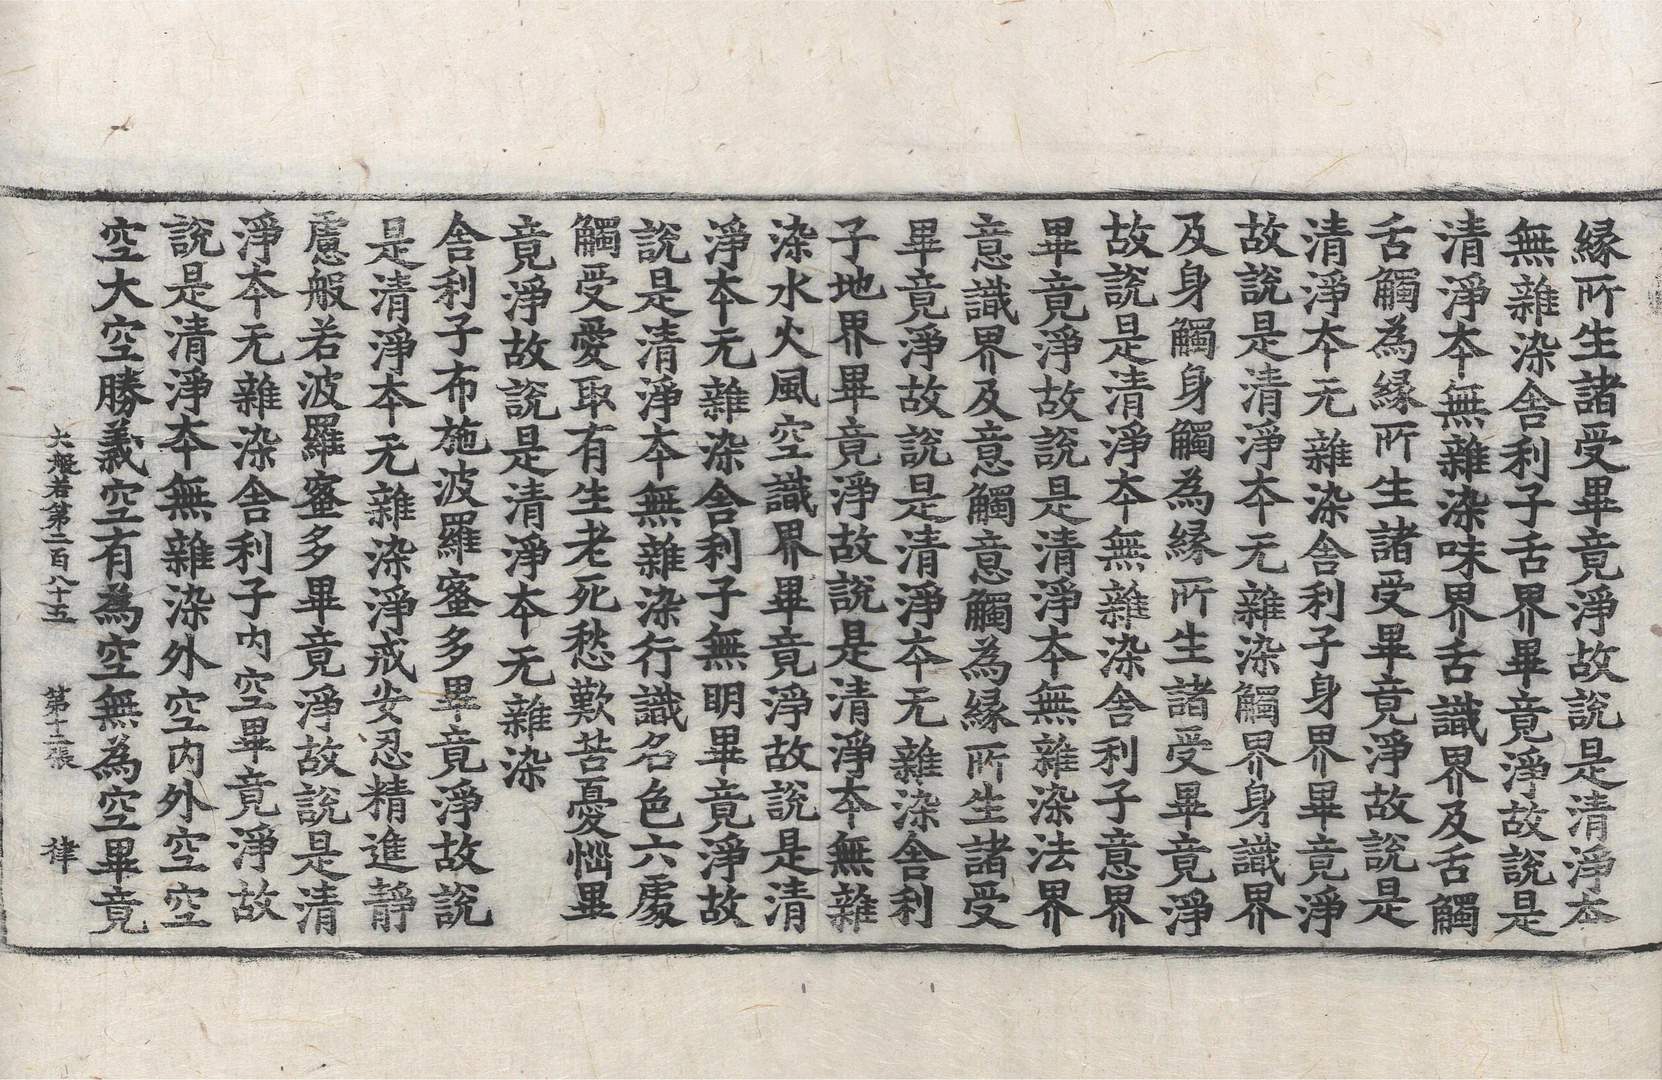 縁所生諸受畢竟淨故說是清淨夲
無雜染舍利子舌界畢竟淨故說是
清淨夲無雜染味界舌識界及舌觸
舌觸為縁所生諸受畢竟淨故說是
清淨夲无雜染舍利子身界畢竟淨
故說是清淨夲无雜染觸界身識界
及身觸身觸為縁所生諸受畢竟淨
故說是清淨夲無雜染舍利子意界
畢竟淨故說是清淨夲無雜染法界
意識界及意觸意觸為縁所生諸受
畢竟淨故說是清淨夲无雜染舍利
子地界畢竟淨故說是清淨夲無雜
染水火風空識界畢竟淨故說是清
淨夲无雜染舍利子無明畢竟淨故
說是清淨夲無雜染行識名色六處
觸受愛取有生老死愁歎苦憂惱畢
竟淨故說是清淨夲无雜染
舍利子布施波羅蜜多畢竟淨故說
是清淨夲无雜染淨戒安忍精進靜
慮般若波羅蜜多畢竟淨故說是清
淨夲无雜染舍利子内空畢竟淨故
說是清淨夲無雜染外空内外空空
空大空勝義空有為空無為空畢竟
大般若第二百八十五 第十二張 律